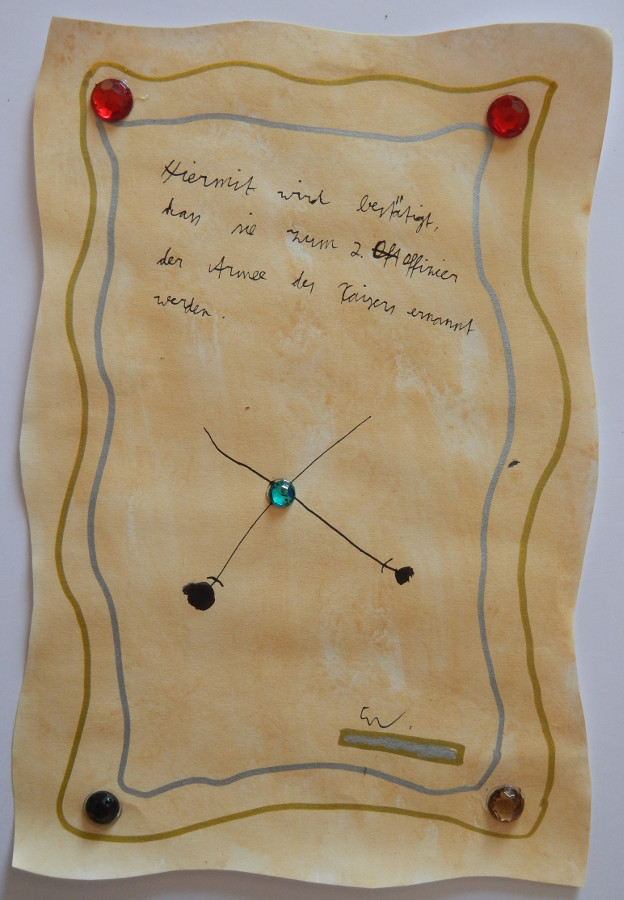 Hiermit wird bestätigt,
dass sie zum 2. offizier
der Armee des Kaisers ernannt
werden.